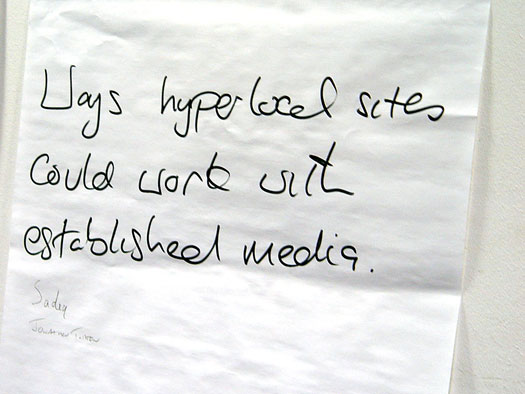 Ways hyperlocal sites
Could work with
established media.
Sadiq